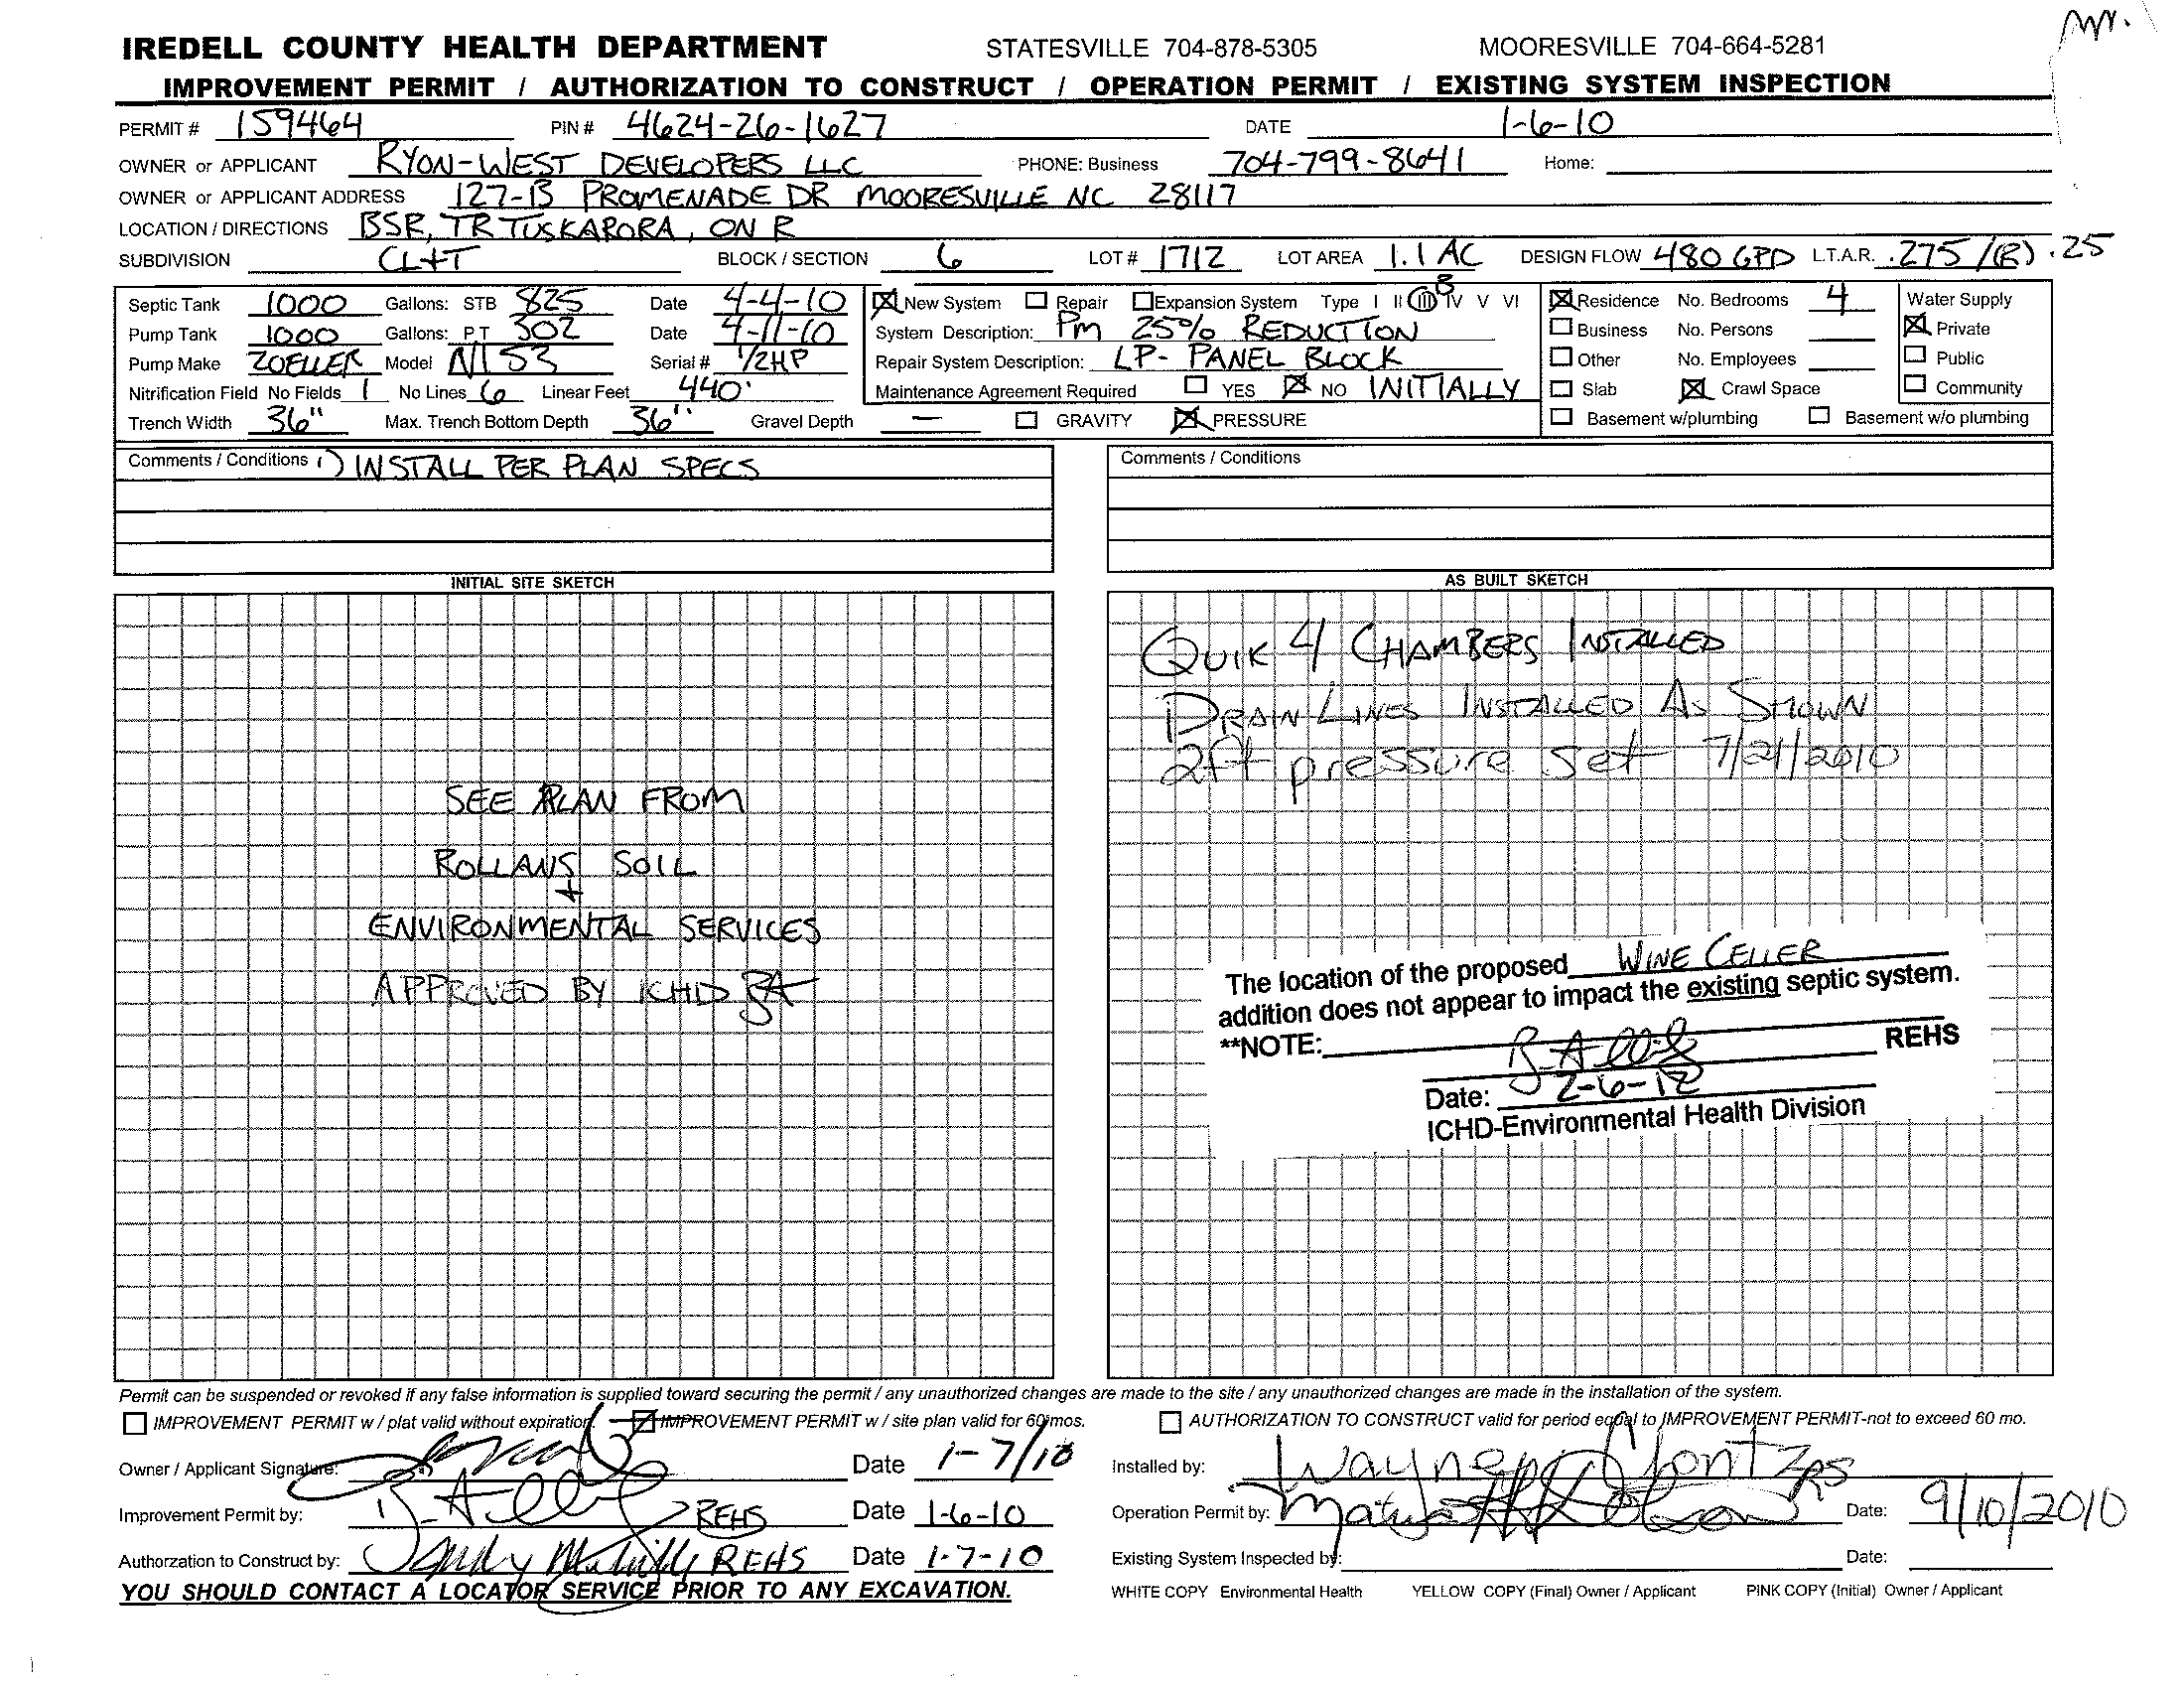 IREDELL COUNTY HEALTH DEPARTMENT STATESVILLE 704-878-5305 MOORESVILLE 704-664-5281
IMPROVEMENT PERMIT / AUTHORIZATION TO CONSTRUCT / OPERATION PERMIT / EXISTING SYSTEM INSPECTION
PERMIT # 159464 PIN # 4624-26-1627 DATE 1-6-10
OWNER or APPLICANT RYON-WEST DEVELOPERS LLC PHONE: Business 704-799-8641 Home:
OWNER or APPLICANT ADDRESS 127-B PROMENADE DR MOORESVILLE NC 28117
LOCATION / DIRECTIONS BSR, TR TUSKARORA, ON R
SUBDIVISION CL+T BLOCK / SECTION 6 LOT # 1712 LOT AREA 1.1 AC DESIGN FLOW 480 GPD L.T.A.R. .275 /(R) .25
Septic Tank 1000 Gallons: STB 825 Date 4-4-10 New System Repair Expansion System Type I II III B IV V VI Residence No. Bedrooms 4 Water Supply
Pump Tank 1000 Gallons: PT 302 Date 4-11-10 System Description: PM 25% REDUCTION Business No. Persons Private
Pump Make ZOELLER Model N153 Serial # 1/2HP Repair System Description: LP- PANEL BLOCK Other No. Employees Public
Nitrification Field No Fields 1 No Lines 6 Linear Feet 440' Maintenance Agreement Required YES NO INITIALLY Slab Crawl Space Community
Trench Width 36" Max. Trench Bottom Depth 36" Gravel Depth — GRAVITY PRESSURE Basement w/plumbing Basement w/o plumbing
Comments / Conditions 1) INSTALL PER PLAN SPECS
Comments / Conditions
INITIAL SITE SKETCH
SEE PLAN FROM
ROLLANS SOIL
+
ENVIRONMENTAL SERVICES
APPROVED BY ICHD BA
AS BUILT SKETCH
QUIK 4 CHAMBERS INSTALLED
DRAIN LINES INSTALLED AS SHOWN
2ft pressure set 7/21/2010
The location of the proposed WINE CELLER
addition does not appear to impact the existing septic system.
**NOTE: REHS
Date: 2-6-12
ICHD-Environmental Health Division
Permit can be suspended or revoked if any false information is supplied toward securing the permit / any unauthorized changes are made to the site / any unauthorized changes are made in the installation of the system.
IMPROVEMENT PERMIT w / plat valid without expiration. IMPROVEMENT PERMIT w / site plan valid for 60 mos. AUTHORIZATION TO CONSTRUCT valid for period equal to IMPROVEMENT PERMIT-not to exceed 60 mo.
Owner / Applicant Signature: Date 1-7/10 Installed by: Wayne
Improvement Permit by: REHS Date 1-6-10 Operation Permit by: Date: 9/10/2010
Authorzation to Construct by: REHS Date 1-7-10 Existing System Inspected by: Date:
YOU SHOULD CONTACT A LOCATOR SERVICE PRIOR TO ANY EXCAVATION.
WHITE COPY Environmental Health YELLOW COPY (Final) Owner / Applicant PINK COPY (Initial) Owner / Applicant